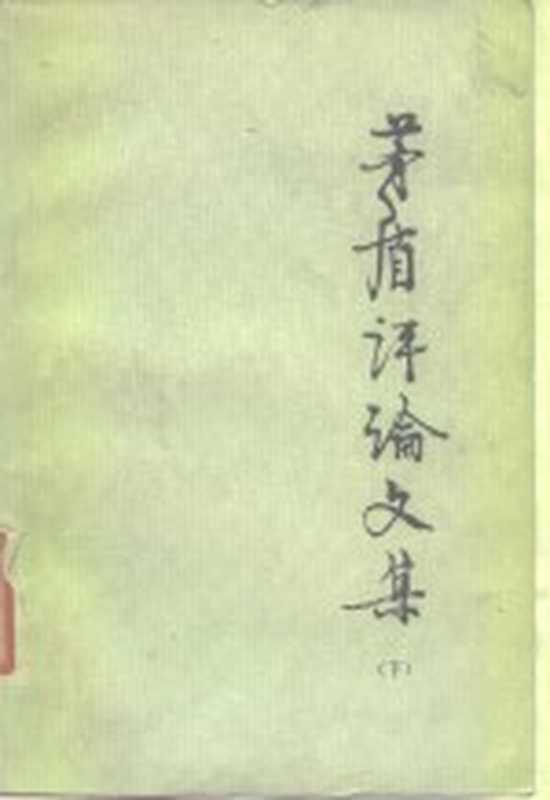 茅盾评论文集
（下）